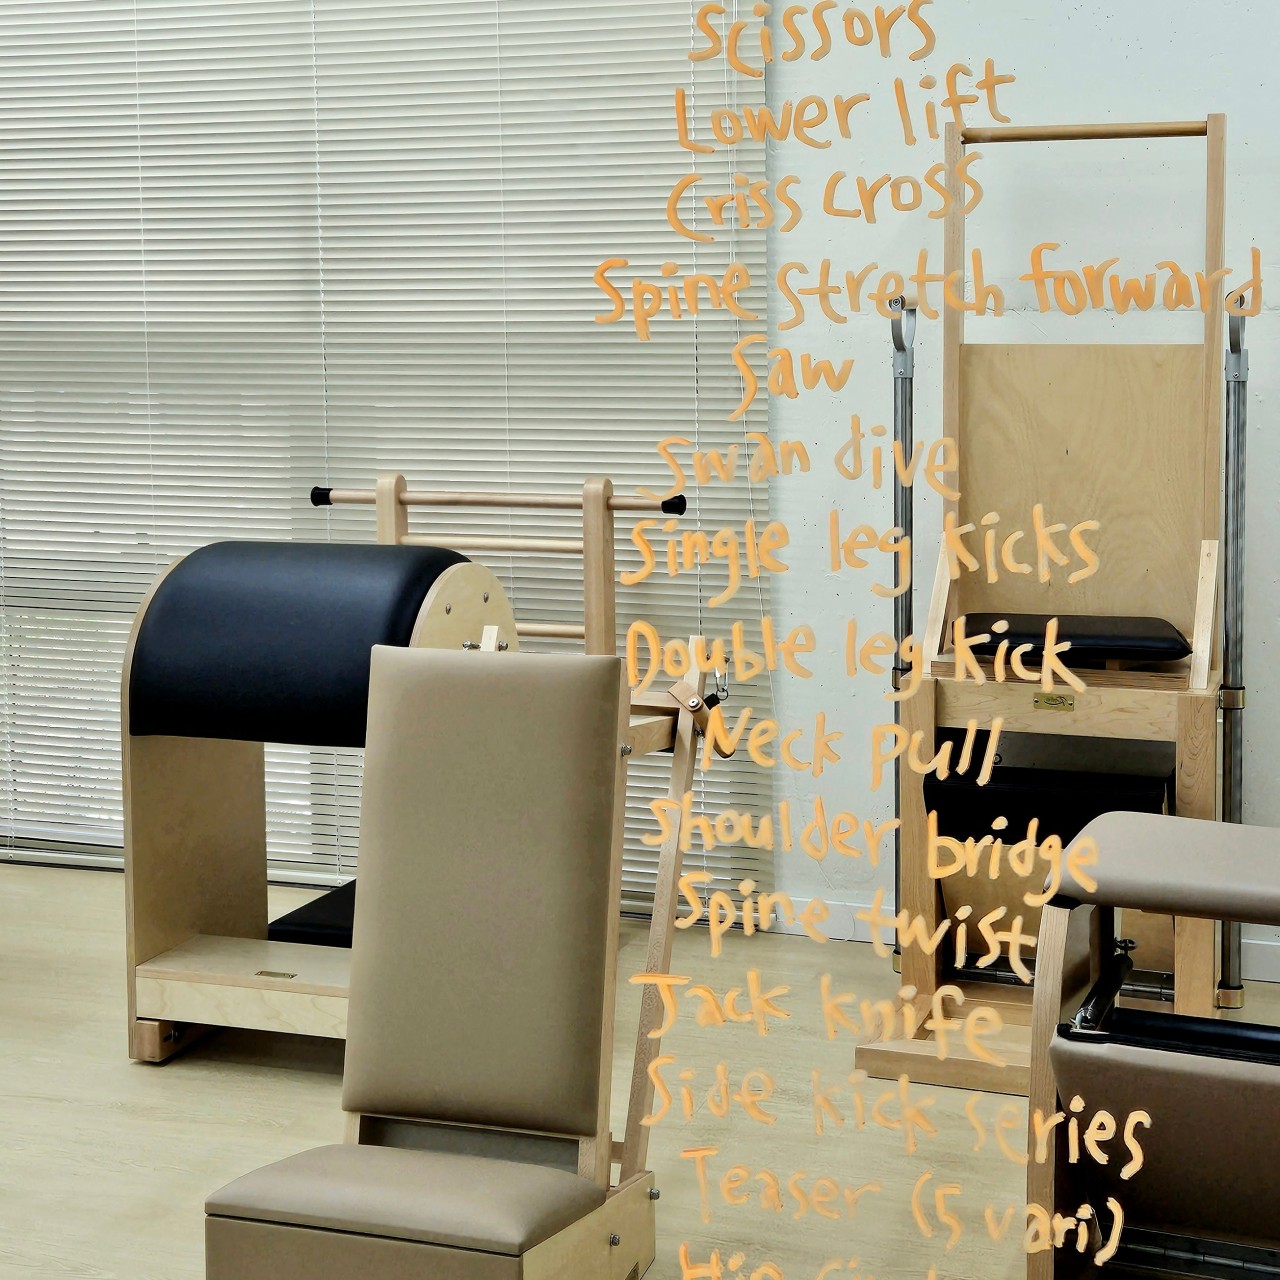 Scissors
Lower lift
Criss cross
Spine stretch forward
Saw
Swan dive
Single leg kicks
Double leg kick
Neck pull
shoulder bridge
Spine twist
Jack knife
Side kick series
Teaser (5 vari)
Hip